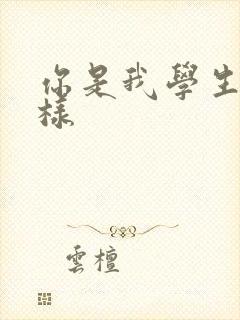 你是我學生
樣
雲檀